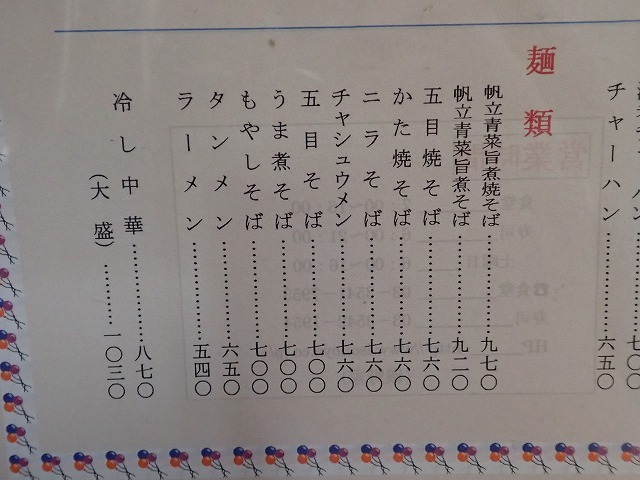 チャーハン…………六五〇
麺類
帆立青菜旨煮焼そば…………九七〇
帆立青菜旨煮そば…………九二〇
五目焼そば…………七六〇
かた焼そば…………七六〇
ニラそば…………七六〇
チャシュウメン…………七六〇
五目そば…………七〇〇
うま煮そば…………七〇〇
もやしそば…………七〇〇
タンメン…………六五〇
ラーメン…………五四〇
冷し中華…………八七〇
(大盛)…………一〇三〇